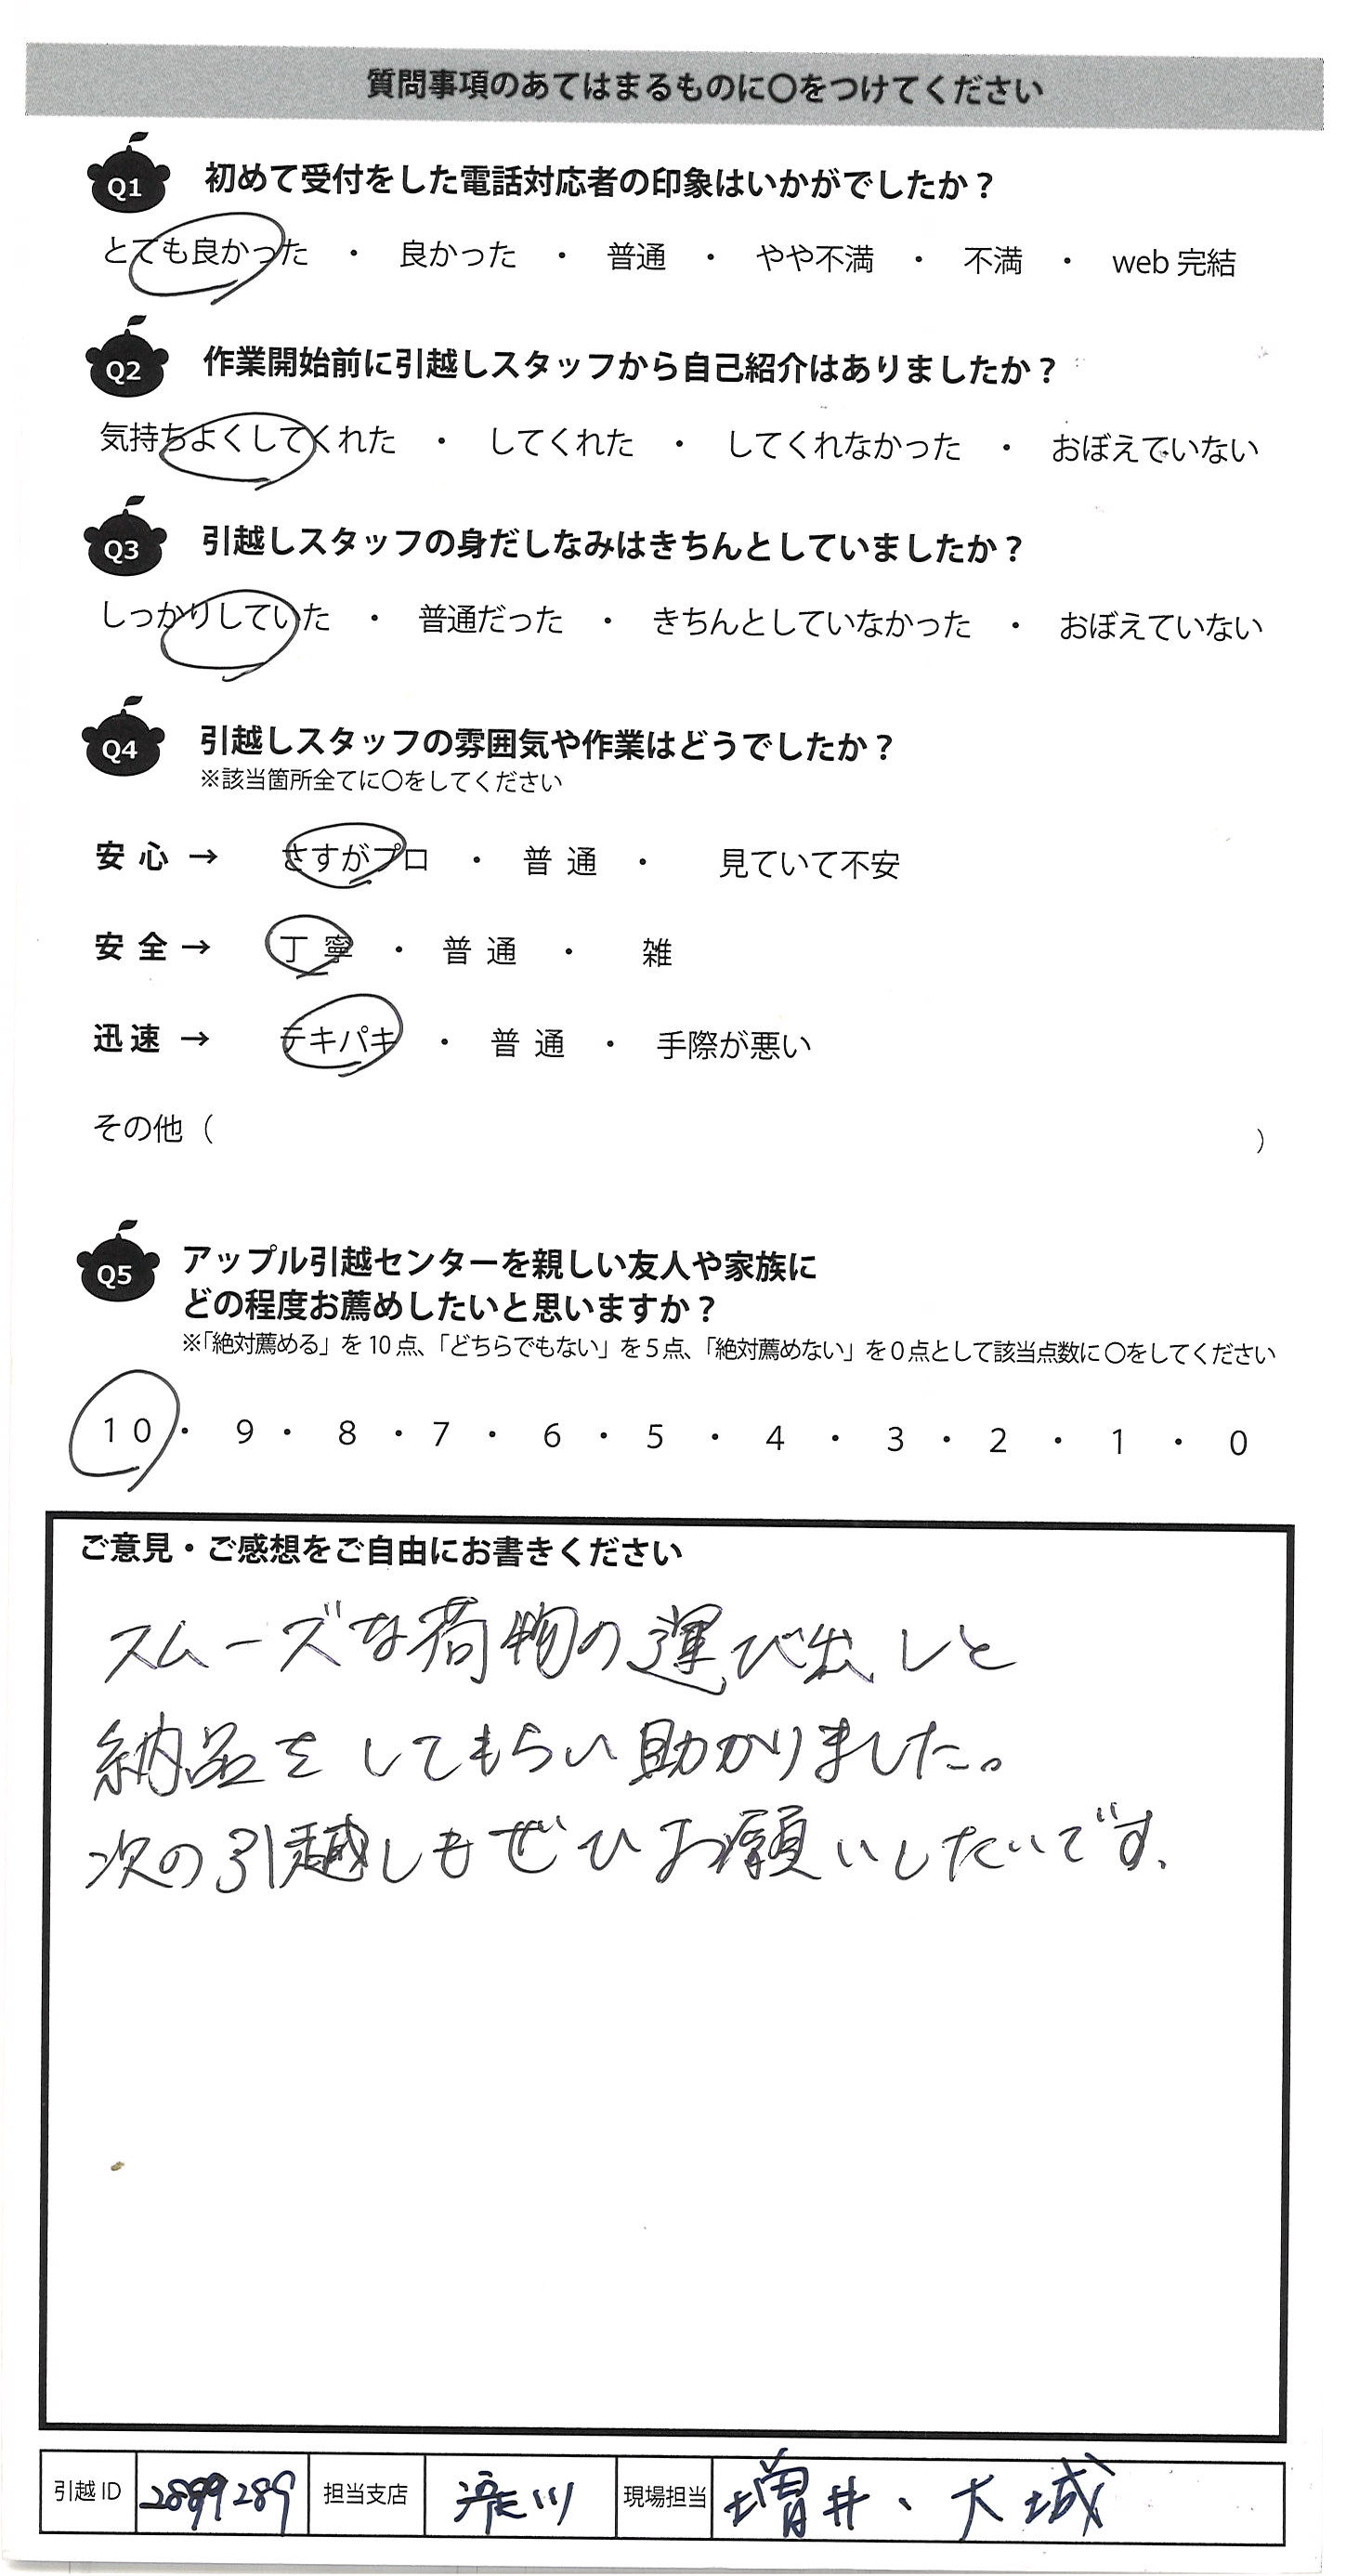 質問事項のあてはまるものに〇をつけてください
Q1 初めて受付をした電話対応者の印象はいかがでしたか？
とても良かった ・ 良かった ・ 普通 ・ やや不満 ・ 不満 ・ web 完結
Q2 作業開始前に引越しスタッフから自己紹介はありましたか？
気持ちよくしてくれた ・ してくれた ・ してくれなかった ・ おぼえていない
Q3 引越しスタッフの身だしなみはきちんとしていましたか？
しっかりしていた ・ 普通だった ・ きちんとしていなかった ・ おぼえていない
Q4 引越しスタッフの雰囲気や作業はどうでしたか？
※該当箇所全てに〇をしてください
安心 → さすがプロ ・ 普通 ・ 見ていて不安
安全 → 丁寧 ・ 普通 ・ 雑
迅速 → テキパキ ・ 普通 ・ 手際が悪い
その他（ ）
Q5 アップル引越センターを親しい友人や家族に
どの程度お薦めしたいと思いますか？
※「絶対薦める」を10点、「どちらでもない」を5点、「絶対薦めない」を0点として該当点数に〇をしてください
10 ・ 9 ・ 8 ・ 7 ・ 6 ・ 5 ・ 4 ・ 3 ・ 2 ・ 1 ・ 0
ご意見・ご感想をご自由にお書きください
スムーズな荷物の運び出しと
納品をしてもらい助かりました。
次の引越しもぜひお願いしたいです、
引越ID 2889289 担当支店 淀川 現場担当 増井、大城